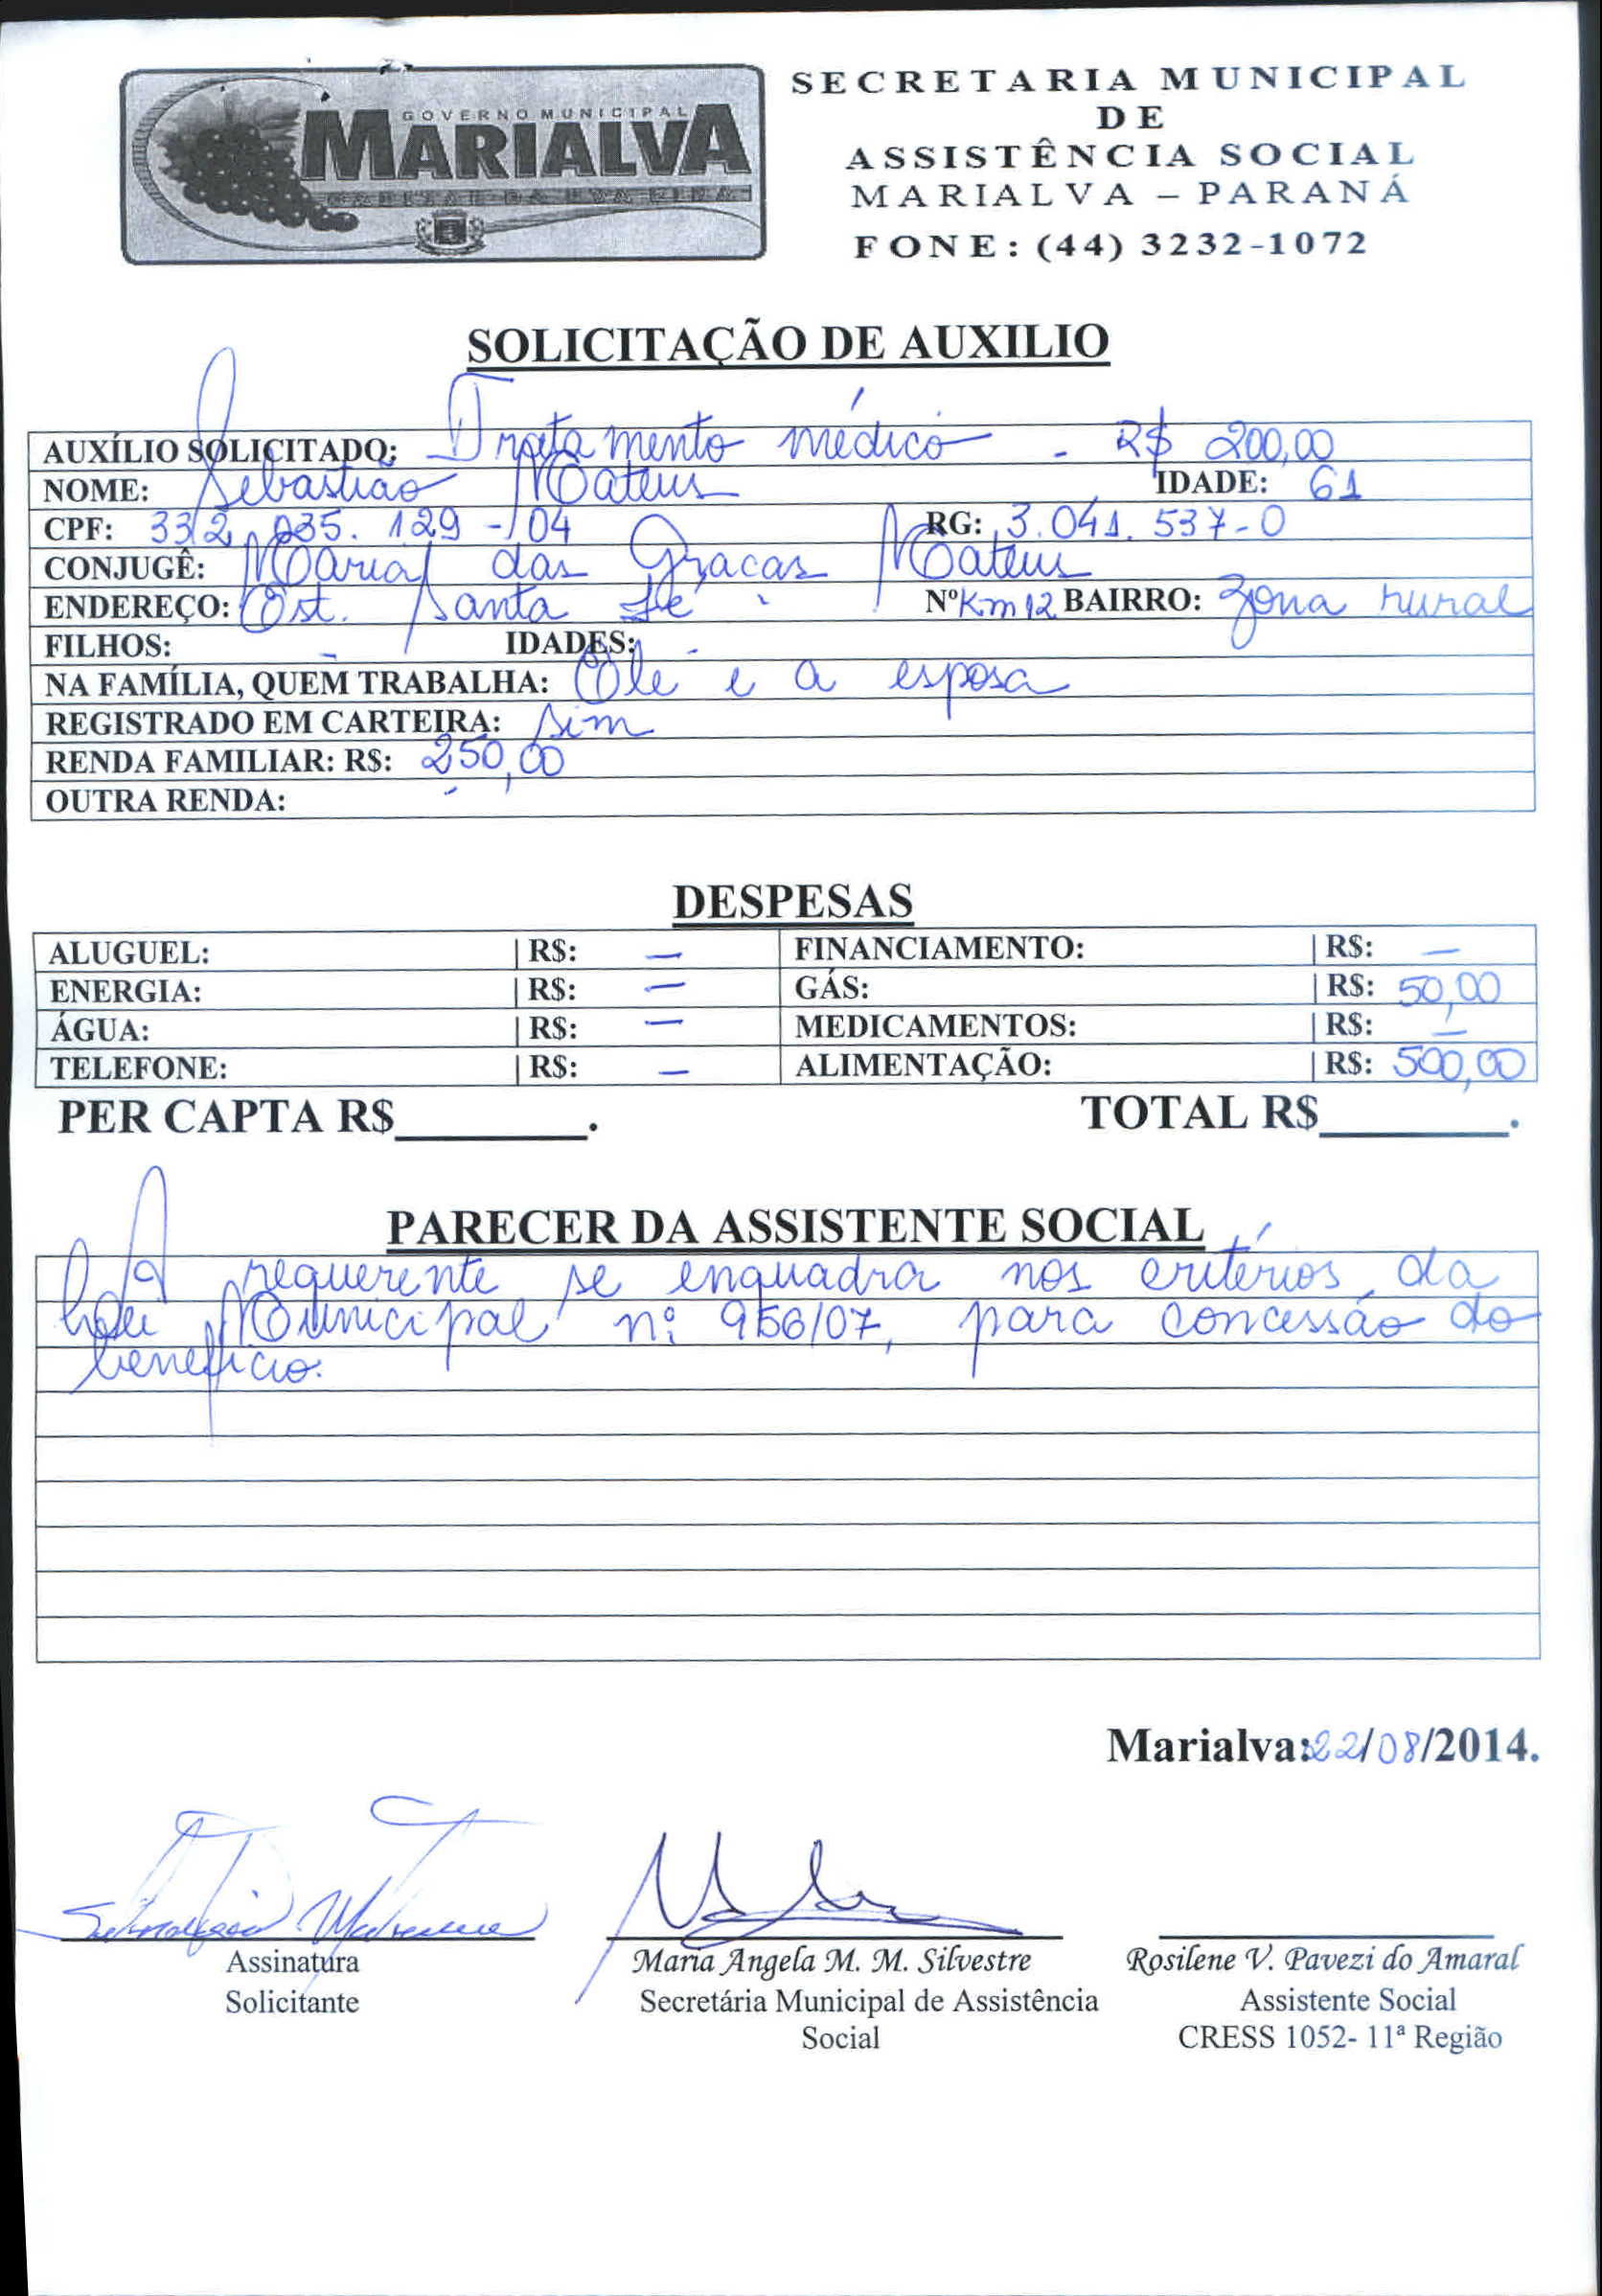 GOVERNO MUNICIPAL
MARIALVA
CAPITAL DA UVA FINA
SECRETARIA MUNICIPAL
DE
ASSISTÊNCIA SOCIAL
MARIALVA – PARANÁ
FONE: (44) 3232-1072
SOLICITAÇÃO DE AUXILIO
AUXÍLIO SOLICITADO: Tratamento médico - R$ 200,00
NOME: Sebastião Mateus IDADE: 61
CPF: 332.035.129-04 RG: 3.041.537-0
CONJUGÊ: Maria das Graças Mateus
ENDEREÇO: Est. Santa Fé Nº Km 12 BAIRRO: Zona rural
FILHOS: - IDADES: -
NA FAMÍLIA, QUEM TRABALHA: Ele e a esposa
REGISTRADO EM CARTEIRA: sim
RENDA FAMILIAR: R$: 250,00
OUTRA RENDA: -
DESPESAS
ALUGUEL: | R$: — FINANCIAMENTO: | R$: —
ENERGIA: | R$: — GÁS: | R$: 50,00
ÁGUA: | R$: — MEDICAMENTOS: | R$: —
TELEFONE: | R$: — ALIMENTAÇÃO: | R$: 500,00
PER CAPTA R$________. TOTAL R$________.
PARECER DA ASSISTENTE SOCIAL
A requerente se enquadra nos critérios da
Lei Municipal nº 956/07, para concessão do
benefício.
Marialva: 22/08/2014.
Assinatura
Solicitante
Maria Angela M. M. Silvestre
Secretária Municipal de Assistência
Social
Rosilene V. Pavezi do Amaral
Assistente Social
CRESS 1052- 11ª Região